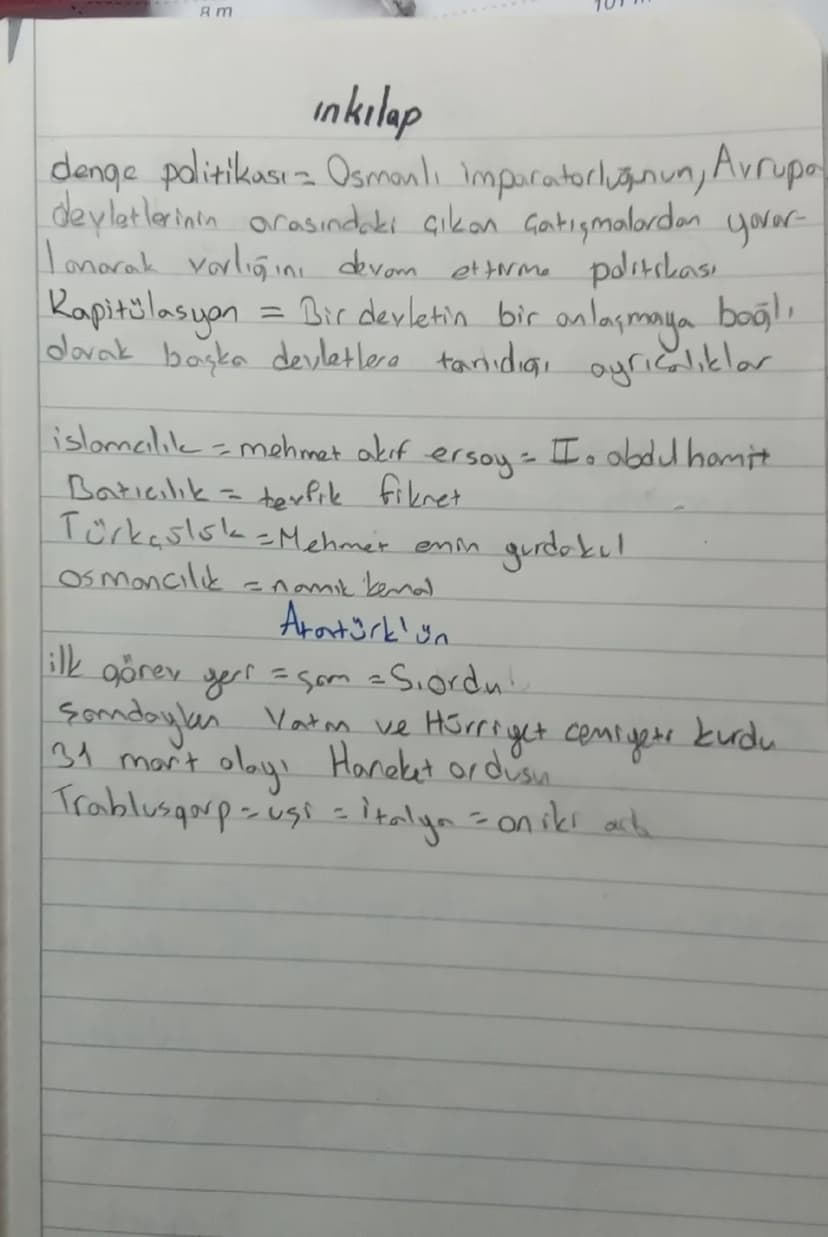 8 m
ınkılap
denge politikası = Osmanlı imparatorluğnun, Avrupa
devletlerinin arasındaki çıkan çatışmalardan yarar-
lanarak varlığını devam ettirme politikası
Kapitülasyon = Bir devletin bir anlaşmaya bağlı
olarak başka devletlere tanıdığı ayrıcalıklar
islamcılık = mehmet akif ersoy = II. abdulhamit
Batıcılık = tevfik fikret
Türkçülük = Mehmet emin yurdakul
osmancılık = namık kemal
Atatürk'ün
ilk görev yeri = şam = 5.ordu
şamdayken Vatan ve Hürriyet cemiyeti kurdu
31 mart olayı Hareket ordusu
Trablusgarp = uşi = italya = on iki